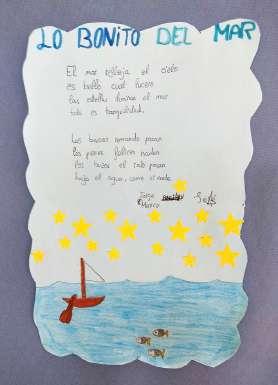 LO BONITO DEL MAR
El mar refleja el cielo
es bello cual lucero
las estrellas iluminan el mar
todo es tranquilidad.
Los barcos remando pasan
los peces felices nadan
los buzos el rato pasan
bajo el agua, como si nada.
Jorge
Marco